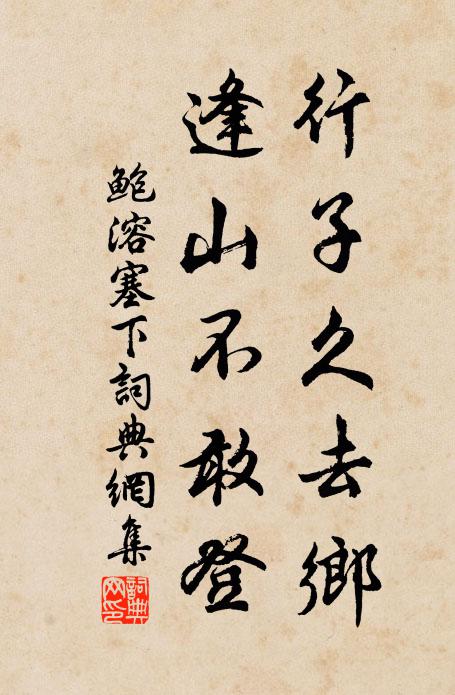 行子久去鄉
逢山不敢登
鮑溶塞下詞典網集
詞典网印